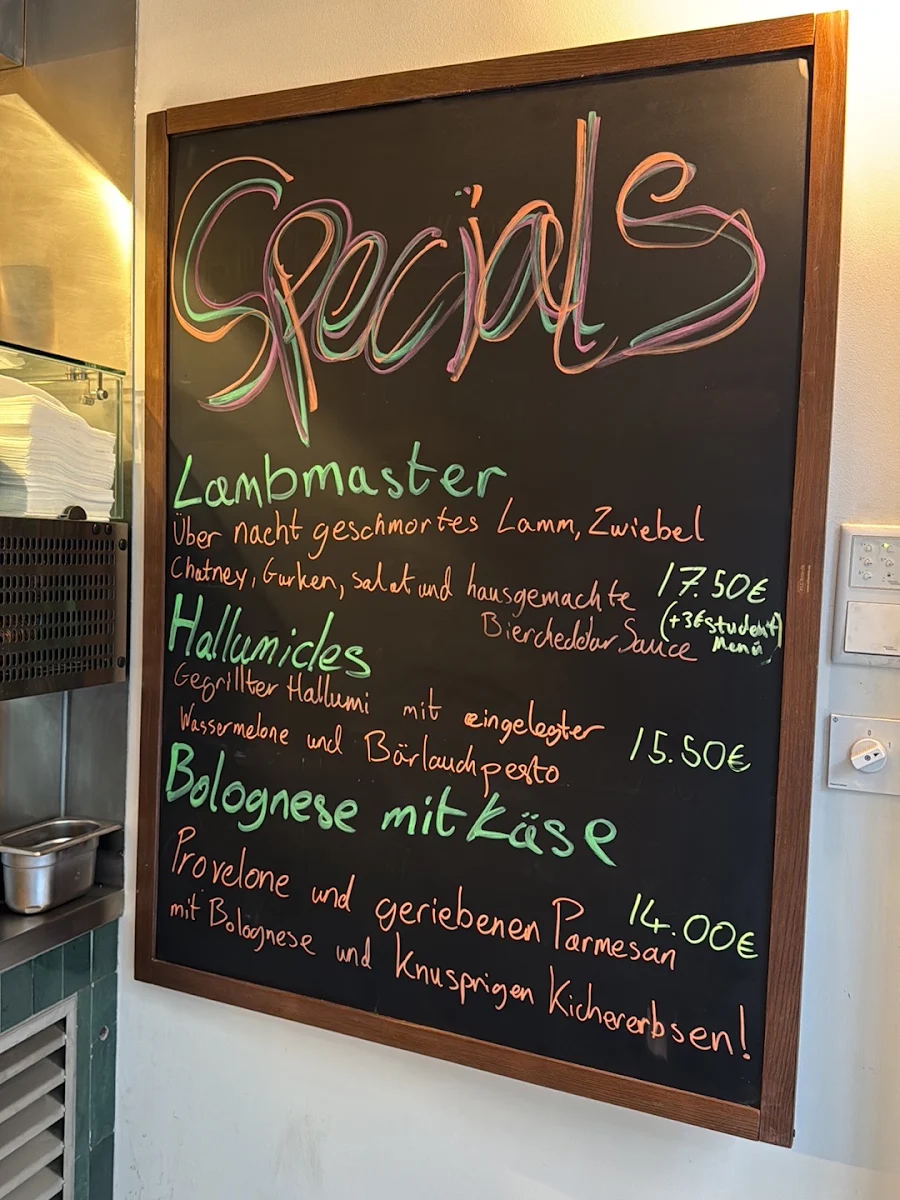 Specials
Lambmaster
Über nacht geschmortes Lamm, Zwiebel
Chatney, Gurken, salat und hausgemachte 17.50€
Biercheddar Sauce (+3€ student Menü)
Hallumicles
Gegrillter Hallumi mit eingelegter
Wassermelone und Bärlauchpesto 15.50€
Bolognese mit Käse
Provelone und geriebenen Parmesan 14.00€
mit Bolognese und Knusprigen Kichererbsen!